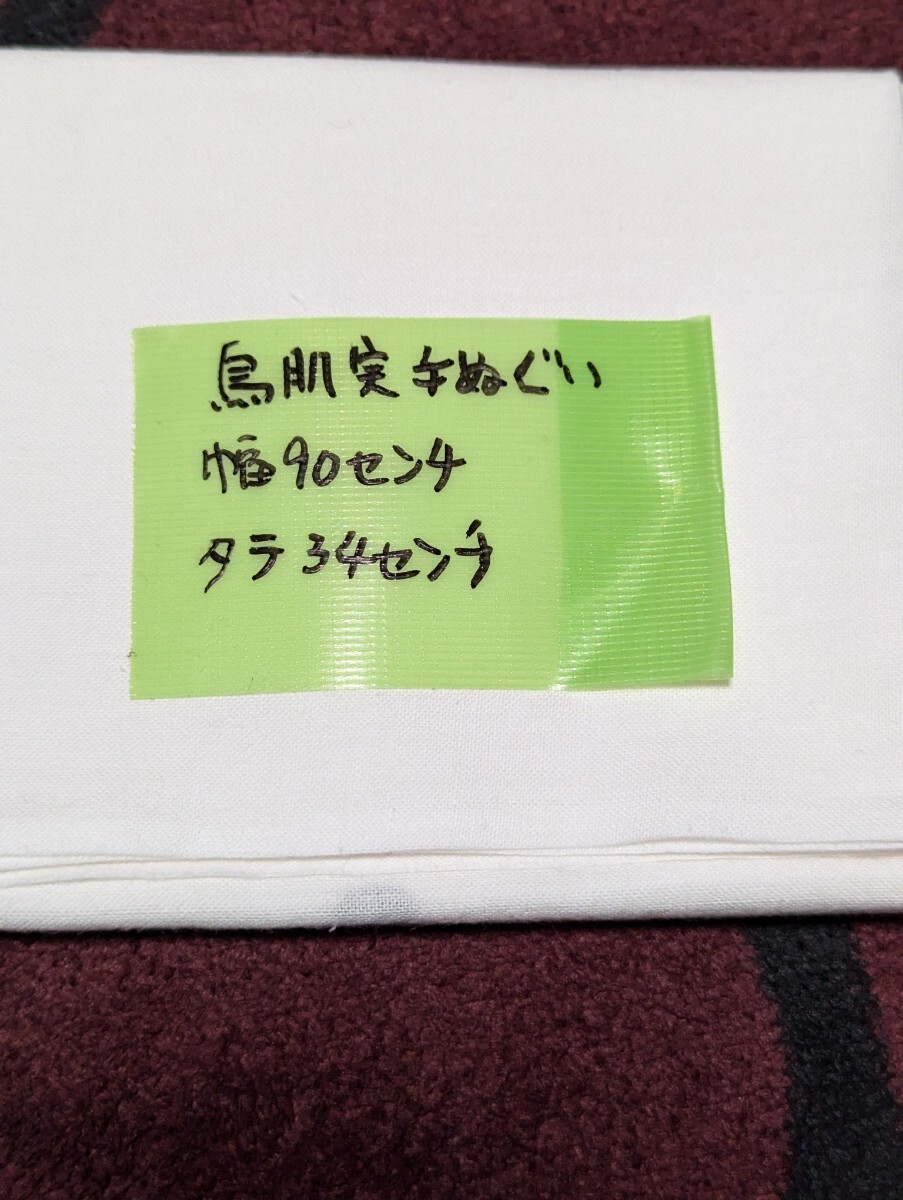 鳥肌実手ぬぐい
幅90センチ
タテ34センチ